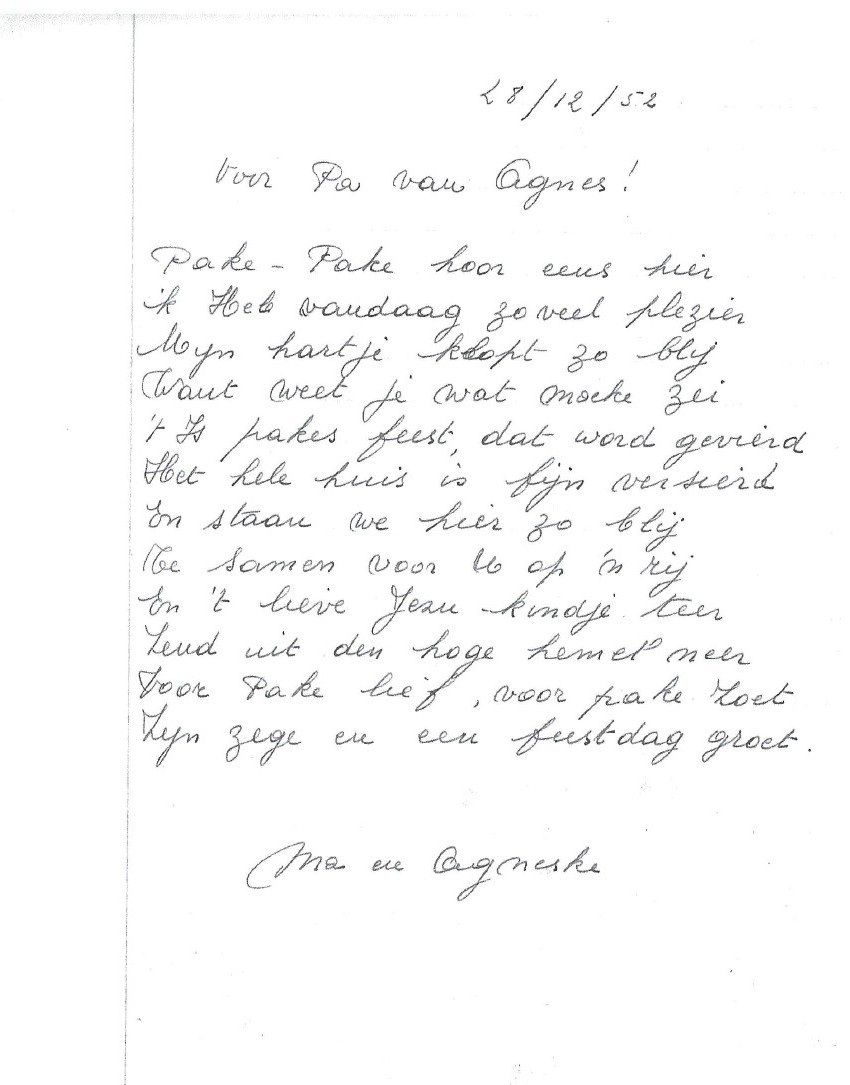 28/12/52
Voor Pa van Agnes!
Pake - Pake hoor eens hier
ik Heb vandaag zo veel plezier
Myn hartje klopt zo blij
Want weet je wat moeke zei
't Is pakes feest, dat word gevierd
Het hele huis is fijn versierd
En staan we hier zo blij
Te samen voor U op 'n rij
En 't lieve Jezu-kindje teer
Zend uit den hoge hemel neer
Voor Pake lief, voor pake zoet
Zyn zege en een feestdag groet.
Ma en Agneske